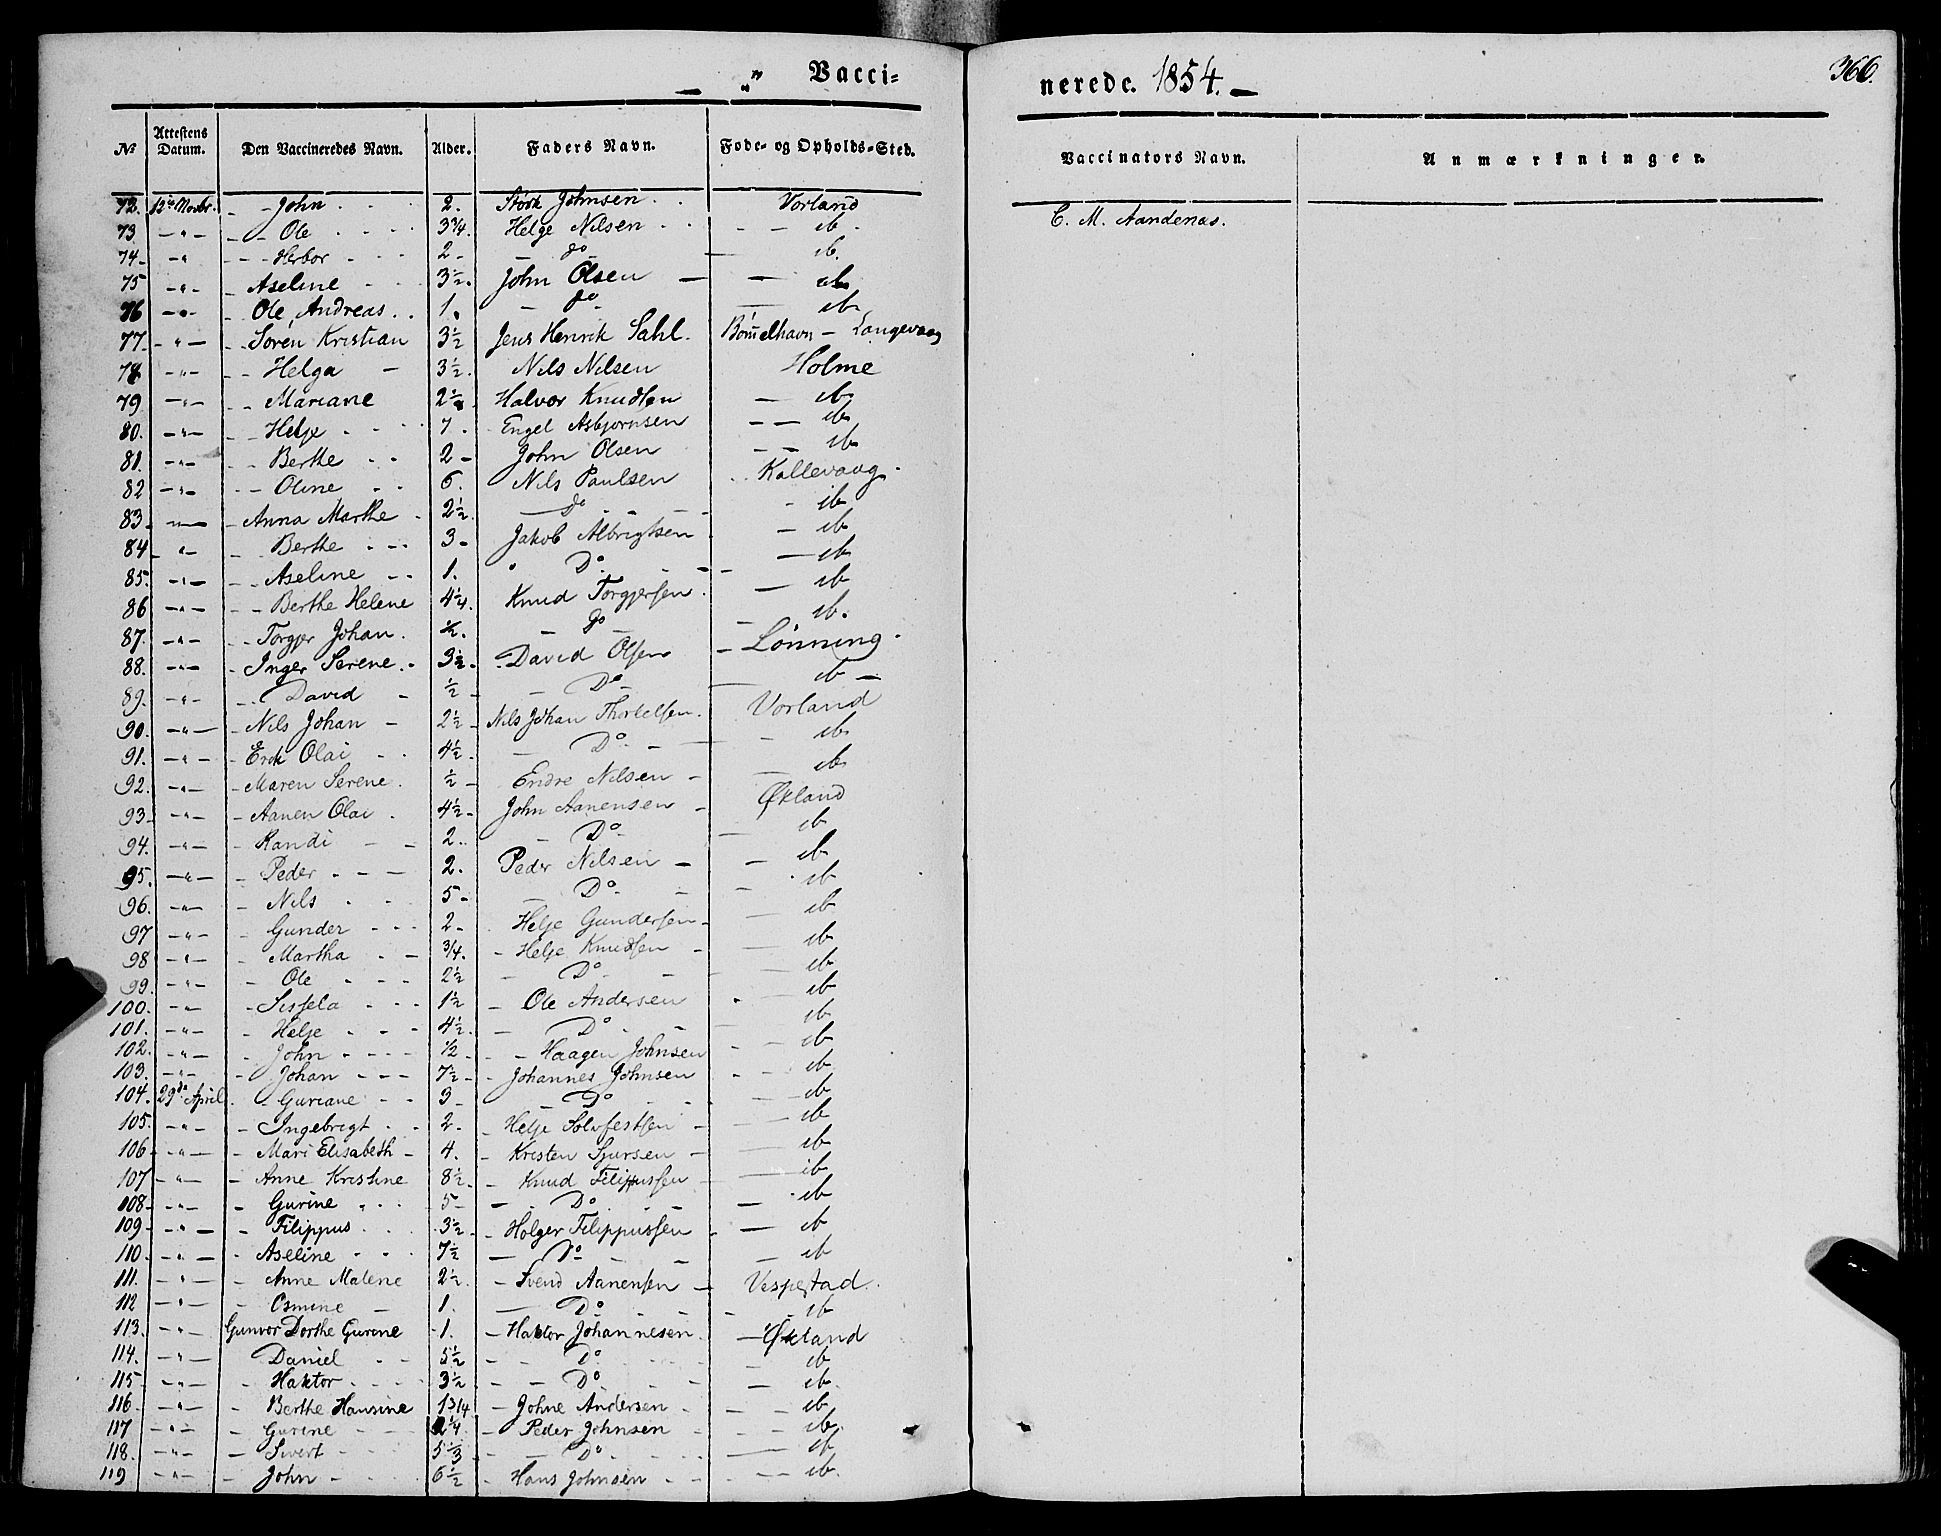 „ Vacci=
nerede. 1854. —
366.
№ Attestens Datum. Den Vaccineredes Navn. Alder. Faders Navn. Føde- og Opholds-Sted. Vaccinators Navn. Anmærkninger.
72. 12te Novbr. John 2. Størk Johnsen Vorland C. M. Aandenas.
73 — " — Ole 3¾. Helge Nilsen ib.
74 — " Herbor 2 — do — ib.
75 — " — Aseline 3½. John Olsen — ib
76 — " — Ole Andreas 1. — do ib
77 — " — Søren Kristian 3½ Jens Henrik Sahl. Bømelhavn — Langevaag
78 — " — Helga — 3½. Nils Nilsen Holme
79 — " — Mariane 2½. Halvor Knudsen — ib
80. — " — Helje 7. Engel Asbjørnsen — ib
81. — " — Berthe 2 — John Olsen — ib
82 — " — Oline 6. Nils Paulsen Kallevaag.
83 — " — Anna Marthe 2½. — do — ib
84 — " — Berthe 3 — Jakob Albrigtsen — ib
85. — " — Aseline 1. " Do. — ib
86 — " — Berthe Helene 4¼. Knud Torgjersen. — ib
87. — " — Torgjer Johan. ½. — do — ib.
88. — " — Inger Serene. 3½. David Olsen — Lønning.
89. — " — David — ½ — Do — ib —
90. — " — Nils Johan — 2½ Nils Johan Thorkelsen. Vorland
91. — " — Erik Olai 4½. — Do. — ib
92. — " — Maren Serene. ½ — Endre Nilsen — ib
93 — " — Aanen Olai 4½ — John Aanensen — Økland
94. — " — Randi — 2. — Do — ib
95. — " — Peder — 2. Peder Nilsen — — ib
96. — " — Nils 5 — — Do — — ib
97 — " — Gunder 2 — Helje Gundersen — ib
98 — " — Martha ¾. — Helje Knudsen — ib
99. — " — Ole 2½ — Do — — ib
100. — " — Sissela 1½ — Ole Andersen — ib
101. — " — Helje 4½. — Do — — ib
102. — " — John ½ — Haagen Johnsen — ib
103. — " — Johan 7½ — Johannes Johnsen — ib
104. 29de April. Guriane 3 — Do — ib
105. — " — Ingebrigt 2. Helje Solvfestsen — ib
106 — " — Mari Elisabeth — 4. — Kristen Sjursen — ib
107 — " — Anne Kristine 8½. — Knud Filippussen ib
108 — " — Gurine 5 — Do — ib
109 — " — Filippus 3½ — Holger Filippussen — ib
110. — " — Aseline 7½ — Do — ib
111. — " — Anne Malene 2½. — Svend Aanensen — Vespestad.
112 — " — Osmine — 1. — Do — ib
113. — " — Gunvor Dorthe Gurine 1. — Haktor Johannesen. — Økland
114. — " — Daniel 5½ — Do ib
115 — " — Haktor 3½ — Do — ib.
116. — " — Berthe Hansine 1¾ — Johne Andersen — ib
117 — " — Gurine 2¼. — Peder Johnsen — ib.
118. — " — Sivert 5⅓ — Do — ib
119 — " — John — 6½ — Hans Johnsen — ib.